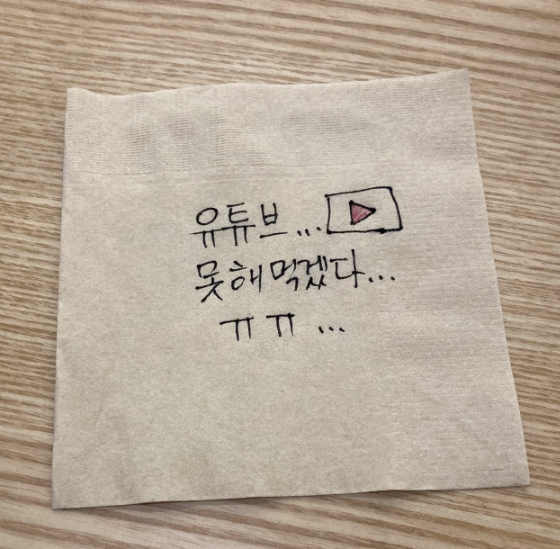 유튜브...
못해먹겠다...
ㅠㅠ ...